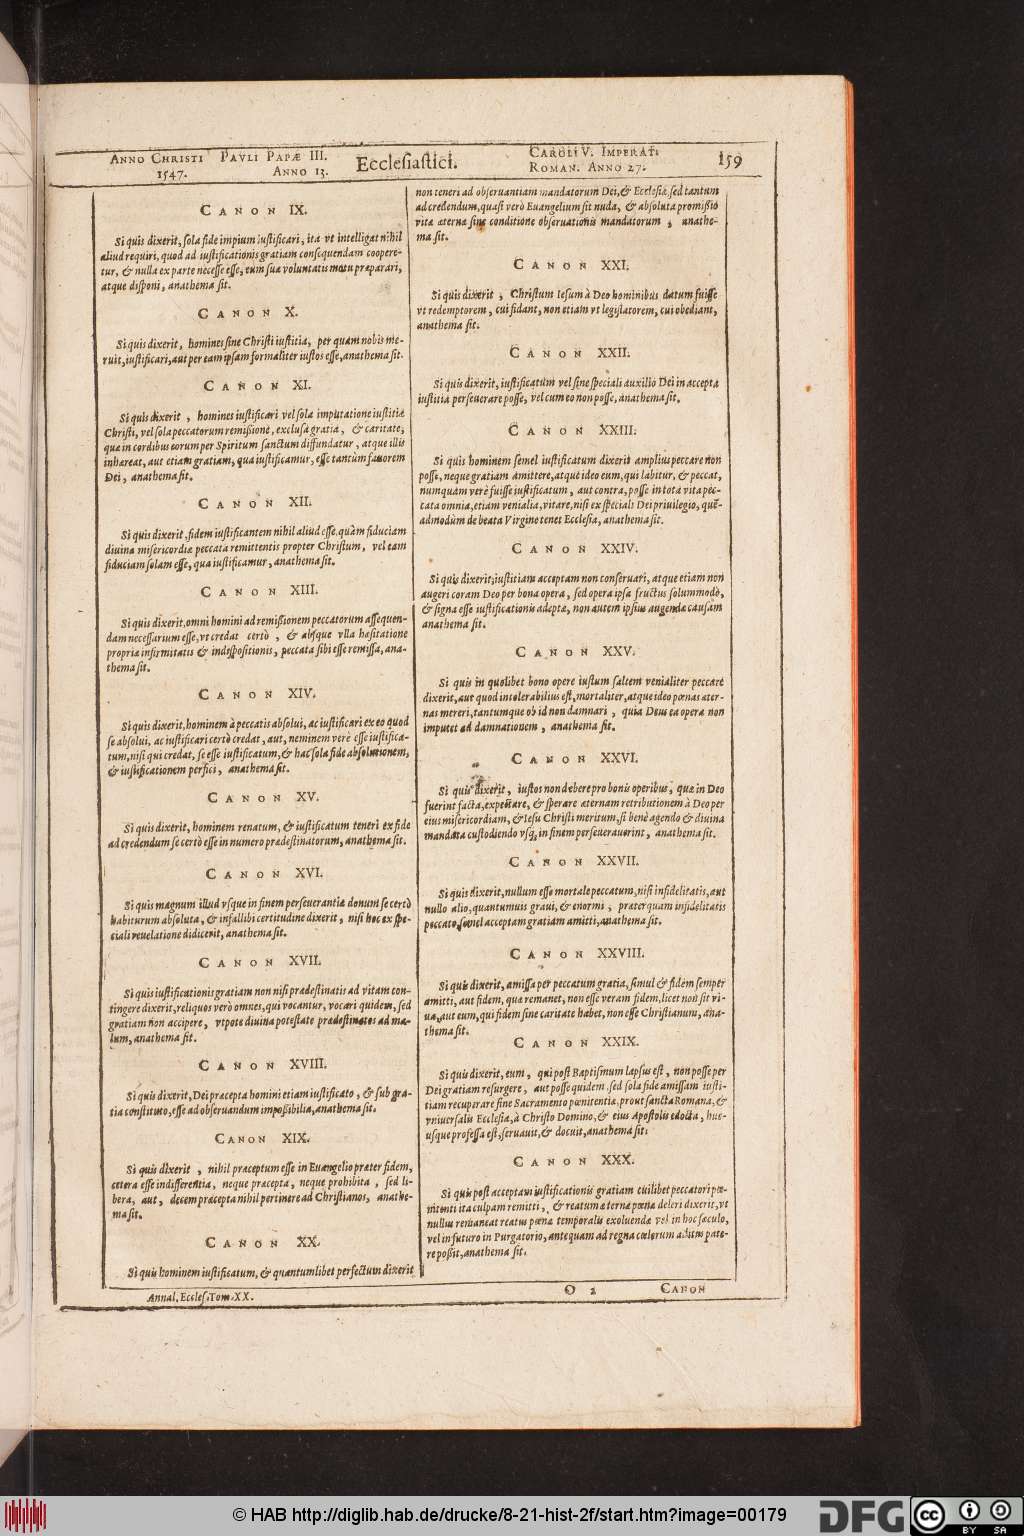 ANNO CHRISTI PAVLI PAPÆ III. Ecclesiastici. CAROLI V. IMPERAT. 159
1547. ANNO 13. ROMAN. ANNO 27.
CANON IX.
Si quis dixerit, sola fide impium iustificari, ita vt intelligat nihil
aliud requiri, quod ad iustificationis gratiam consequendam coopere-
tur, & nulla ex parte necesse esse, eum suæ voluntatis motu præparari,
atque disponi, anathema sit.
CANON X.
Si quis dixerit, homines sine Christi iustitia, per quam nobis me-
ruit, iustificari, aut per eam ipsam formaliter iustos esse, anathema sit.
CANON XI.
Si quis dixerit, homines iustificari vel sola imputatione iustitiæ
Christi, vel sola peccatorum remissione, exclusa gratia, & caritate,
quæ in cordibus eorum per Spiritum sanctum diffundatur, atque illis
inhæreat, aut etiam gratiam, qua iustificamur, esse tantùm fauorem
Dei, anathema sit.
CANON XII.
Si quis dixerit, fidem iustificantem nihil aliud esse, quàm fiduciam
diuinæ misericordiæ peccata remittentis propter Christum, vel eam
fiduciam solam esse, qua iustificamur, anathema sit.
CANON XIII.
Si quis dixerit, omni homini ad remissionem peccatorum assequen-
dam necessarium esse, vt credat certò, & absque vlla hæsitatione
propriæ infirmitatis & indispositionis, peccata sibi esse remissa, ana-
thema sit.
CANON XIV.
Si quis dixerit, hominem à peccatis absolui, ac iustificari ex eo quod
se absolui, ac iustificari certò credat, aut, neminem verè esse iustifica-
tum, nisi qui credat, se esse iustificatum, & hac sola fide absolutionem,
& iustificationem perfici, anathema sit.
CANON XV.
Si quis dixerit, hominem renatum, & iustificatum teneri ex fide
ad credendum se certò esse in numero prædestinatorum, anathema sit.
CANON XVI.
Si quis magnum illud vsque in finem perseuerantiæ donum se certò
habiturum absoluta, & infallibi certitudine dixerit, nisi hoc ex spe-
ciali reuelatione didicerit, anathema sit.
CANON XVII.
Si quis iustificationis gratiam non nisi prædestinatis ad vitam con-
tingere dixerit, reliquos verò omnes, qui vocantur, vocari quidem, sed
gratiam non accipere, vtpote diuina potestate prædestinatos ad ma-
lum, anathema sit.
CANON XVIII.
Si quis dixerit, Dei præcepta homini etiam iustificato, & sub gra-
tia constituto, esse ad obseruandum impossibilia, anathema sit.
CANON XIX.
Si quis dixerit, nihil præceptum esse in Euangelio præter fidem,
cetera esse indifferentia, neque præcepta, neque prohibita, sed li-
bera, aut, decem præcepta nihil pertinere ad Christianos, anathe-
ma sit.
CANON XX.
Si quis hominem iustificatum, & quantumlibet perfectum dixerit
Annal. Eccles. Tom. XX.
non teneri ad obseruantiam mandatorum Dei, & Ecclesiæ, sed tantum
ad credendum, quasi verò Euangelium sit nuda, & absoluta promissio
vitæ æternæ sine conditione obseruationis mandatorum, anathe-
ma sit.
CANON XXI.
Si quis dixerit, Christum Iesum à Deo hominibus datum fuisse
vt redemptorem, cui fidant, non etiam vt legislatorem, cui obediant,
anathema sit.
CANON XXII.
Si quis dixerit, iustificatum vel sine speciali auxilio Dei in accepta
iustitia perseuerare posse, vel cum eo non posse, anathema sit.
CANON XXIII.
Si quis hominem semel iustificatum dixerit amplius peccare non
posse, neque gratiam amittere, atque ideo eum, qui labitur, & peccat,
numquam verè fuisse iustificatum, aut contra, posse in tota vita pec-
cata omnia, etiam venialia, vitare, nisi ex speciali Dei priuilegio, quē-
admodùm de beata Virgine tenet Ecclesia, anathema sit.
CANON XXIV.
Si quis dixerit, iustitiam acceptam non conseruari, atque etiam non
augeri coram Deo per bona opera, sed opera ipsa fructus solummodò,
& signa esse iustificationis adeptæ, non autem ipsius augendæ causam
anathema sit.
CANON XXV.
Si quis in quolibet bono opere iustum saltem venialiter peccare
dixerit, aut quod intolerabilius est, mortaliter, atque ideo pœnas æter-
nas mereri, tantumque ob id non damnari, quia Deus ea opera non
imputet ad damnationem, anathema sit.
CANON XXVI.
Si quis dixerit, iustos non debere pro bonis operibus, quæ in Deo
fuerint facta, expectare, & sperare æternam retributionem à Deo per
eius misericordiam, & Iesu Christi meritum, si benè agendo & diuina
mandata custodiendo vsq; in finem perseuerauerint, anathema sit.
CANON XXVII.
Si quis dixerit, nullum esse mortale peccatum, nisi infidelitatis, aut
nullo alio, quantumuis graui, & enormi, præterquam infidelitatis
peccato, semel acceptam gratiam amitti, anathema sit.
CANON XXVIII.
Si quis dixerit, amissa per peccatum gratia, simul & fidem semper
amitti, aut fidem, quæ remanet, non esse veram fidem, licet non sit vi-
ua, aut eum, qui fidem sine caritate habet, non esse Christianum, ana-
thema sit.
CANON XXIX.
Si quis dixerit, eum, qui post Baptismum lapsus est, non posse per
Dei gratiam resurgere, aut posse quidem, sed sola fide amissam iusti-
tiam recuperare sine Sacramento pœnitentiæ, prout sancta Romana, &
vniuersalis Ecclesia, à Christo Domino, & eius Apostolis edocta, huc-
usque professa est, seruauit, & docuit, anathema sit.
CANON XXX.
Si quis post acceptam iustificationis gratiam cuilibet peccatori pœ-
nitenti ita culpam remitti, & reatum æternæ pœnæ deleri dixerit, vt
nullus remaneat reatus pœnæ temporalis exoluendæ vel in hoc sæculo,
vel in futuro in Purgatorio, antequam ad regna cœlorum aditus pate-
re possit, anathema sit.
O 2 CANON
© HAB http://diglib.hab.de/drucke/8-21-hist-2f/start.htm?image=00179 DFG cc BY SA